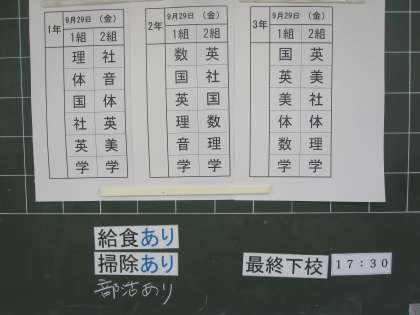 1年 9月29日 (金)
1組 2組
理 社
体 音
国 体
社 英
英 美
学 学
2年 9月29日 (金)
1組 2組
数 英
国 社
英 国
理 数
音 理
学 学
3年 9月29日 (金)
1組 2組
国 英
英 美
美 社
体 体
数 理
学 学
給食あり
掃除あり
部活あり
最終下校 17:30